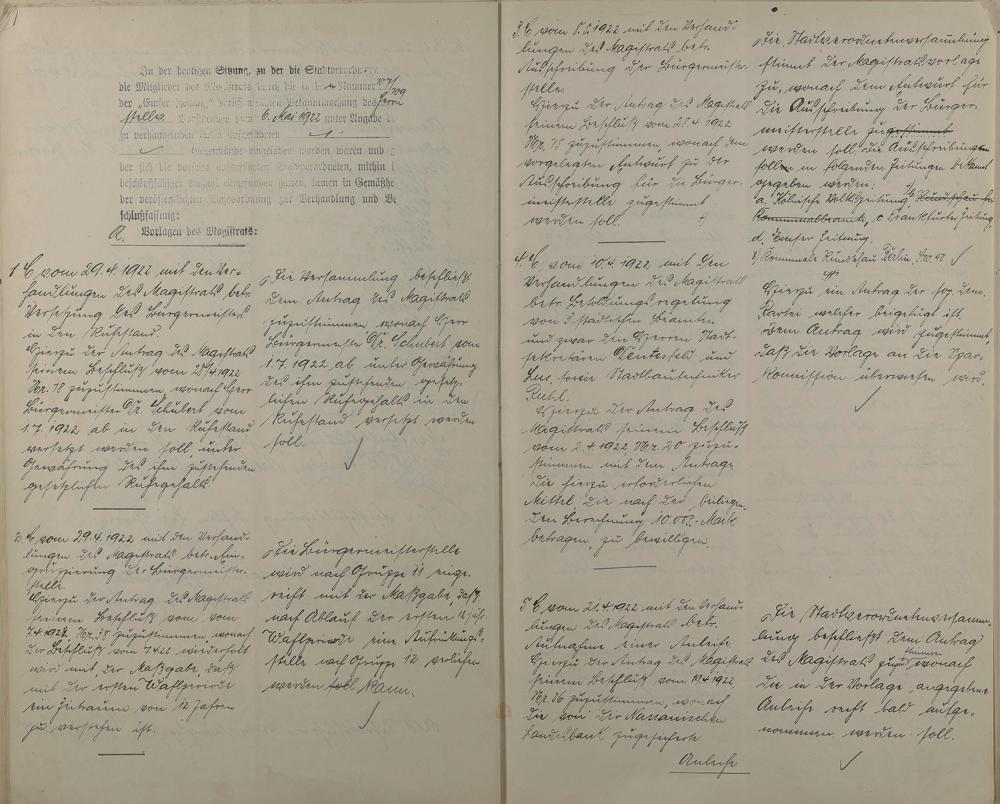 In der heutigen Sitzung, zu der die Stadtverordneten
die Mitglieder des Magistrats durch die in der Nummer 107/109
der „Emser Zeitung" veröffentlichten Bekanntmachung des
stellv. Vorstehers vom 6. Mai 1922 unter Angabe d
zu verhandelnden
Gegenstände eingeladen worden waren und
der sich die vorseits aufgeführten Stadtverordneten, mithin i
beschlußfähiger Anzahl eingefunden hatten, kamen in Gemäßhe
der veröffentlichten Tagesordnung zur Verhandlung und Be
schlußfassung:
A. Vorlagen des Magistrats:
1. E. vom 29.4.1922 mit den Ver-
handlungen des Magistrats betr.
Versetzung des Bürgermeisters
in den Ruhestand.
Hierzu der Antrag des Magistrats
seinem Beschluß vom 1922
Nr. 18 zuzustimmen, wonach Herr
Bürgermeister Dr. Schubert vom
1.7.1922 ab in den Ruhestand
versetzt werden soll, unter
Gewährung des ihm zustehenden
gesetzlichen Ruhegehalts
Die Versammlung beschließt
dem Antrag des Magistrats
zuzustimmen, wonach Herr
Bürgermeister Dr. Schubert vom
1.7.1922 ab unter Gewährung
des ihm zustehenden gesetz-
lichen Ruhegehalts in den
Ruhestand versetzt werden
soll.
2. E. vom 29.4.1922 mit den Verhand-
lungen des Magistrats betr. Ein-
gruppierung der Bürgermeister-
stelle.
Hierzu der Antrag des Magistrats
seinem Beschluß vom vom
7.4.1922, Nr. 38 zuzustimmen, wonach
der Beschluß vom 7.4.22 wiederholt
wird mit der Maßgabe, daß
mit der ersten Wahlperiode
ein Zeitraum von 12 Jahren
zu verstehen ist.
Die Bürgermeisterstelle
wird nach Gruppe 11 einge-
reiht mit der Maßgabe, daß
nach Ablauf der ersten 12 jähr.
Wahlperiode eine Aufrückungs-
stelle nach Gruppe 12 verliehen
werden soll kann.
3. E. vom 1922 mit den Verhand-
lungen des Magistrats betr.
Ausschreibung der Bürgermeister-
stelle.
Hierzu der Antrag des Magistrats
seinem Beschluß vom 1922
Nr. 15 zuzustimmen, wonach dem
vorgelegten Entwurf zu der
Ausschreibung für die Bürger-
meisterstelle zugestimmt
werden soll.
Die Stadtverordnetenversammlung
stimmt der Magistratsvorlage
zu, wonach dem Entwurf für
die Ausschreibung der Bürger-
meisterstelle zugestimmt
werden soll. Die Ausschreibungen
sollen in folgenden Zeitungen bekannt
gegeben werden:
a. Kölnische Volkszeitung, Rundschau für
Kommunalbeamte, c Frankfurter Zeitung,
d. Emser Zeitung.
Kommunale Rundschau Berlin,
4. E. vom 10.4.1922 mit den
Verhandlungen des Magistrats
betr. Besoldungsregelung
von 3 städtischen Beamten
und zwar den Herren Stadt-
sekretären und
sowie Stadtbautechniker
Hierzu der Antrag des
Magistrats seinem Beschluß
vom 2.4.1922 Nr. 20 zuzu-
stimmen mit dem Antrage
die hierzu erforderlichen
Mittel, die nach der beilegen-
den Berechnung 10.000.- Mark
betragen, zu bewilligen.
Hierzu ein Antrag der soz. dem.
Partei welcher beigefügt ist.
Dem Antrag wird zugestimmt,
daß die Vorlage an die Spar-
kommission überwiesen wird.
5. E. vom 21.4.1922 mit den Verhand-
lungen des Magistrats betr.
Aufnahme einer Anleihe.
Hierzu der Antrag des Magistrats
seinem Beschluß vom 1922
Nr. 26 zuzustimmen, wonach
die von der Nassauischen
Landesbank zugesicherte
Anleihe
Die Stadtverordnetenversamm-
lung beschließt dem Antrag
des Magistrats zuzustimmen wonach
die in der Vorlage angegebene
Anleihe recht bald aufge-
nommen werden soll.